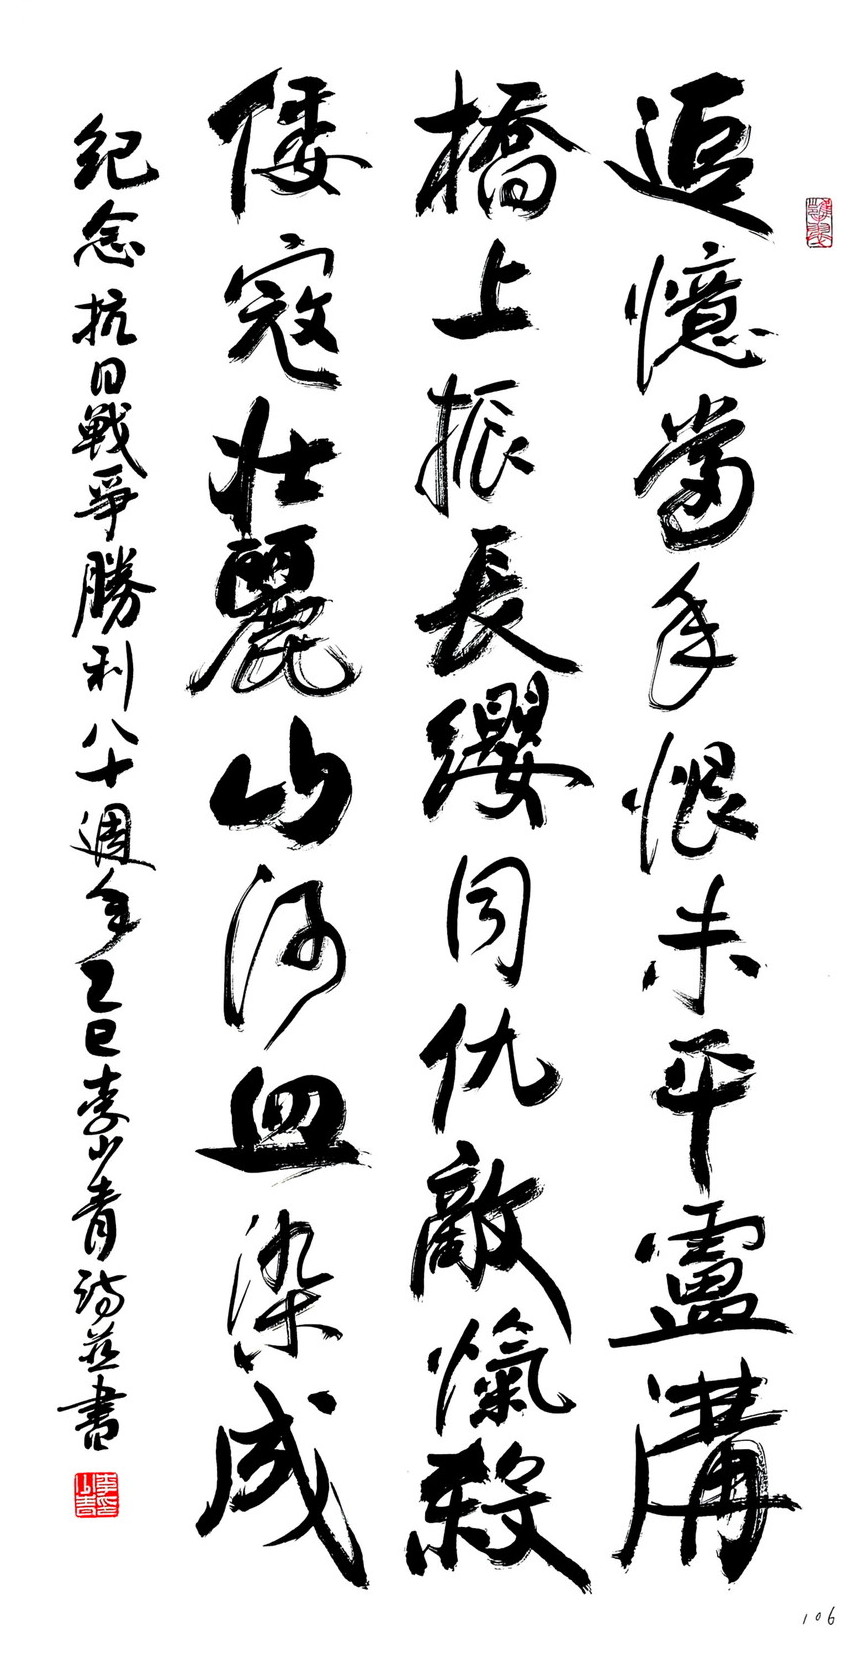 追憶當年恨未平盧溝
橋上振長纓同仇敵愾殺
倭寇壯麗山河血染成
纪念抗日戰爭勝利八十週年乙巳李少青詩并書
106